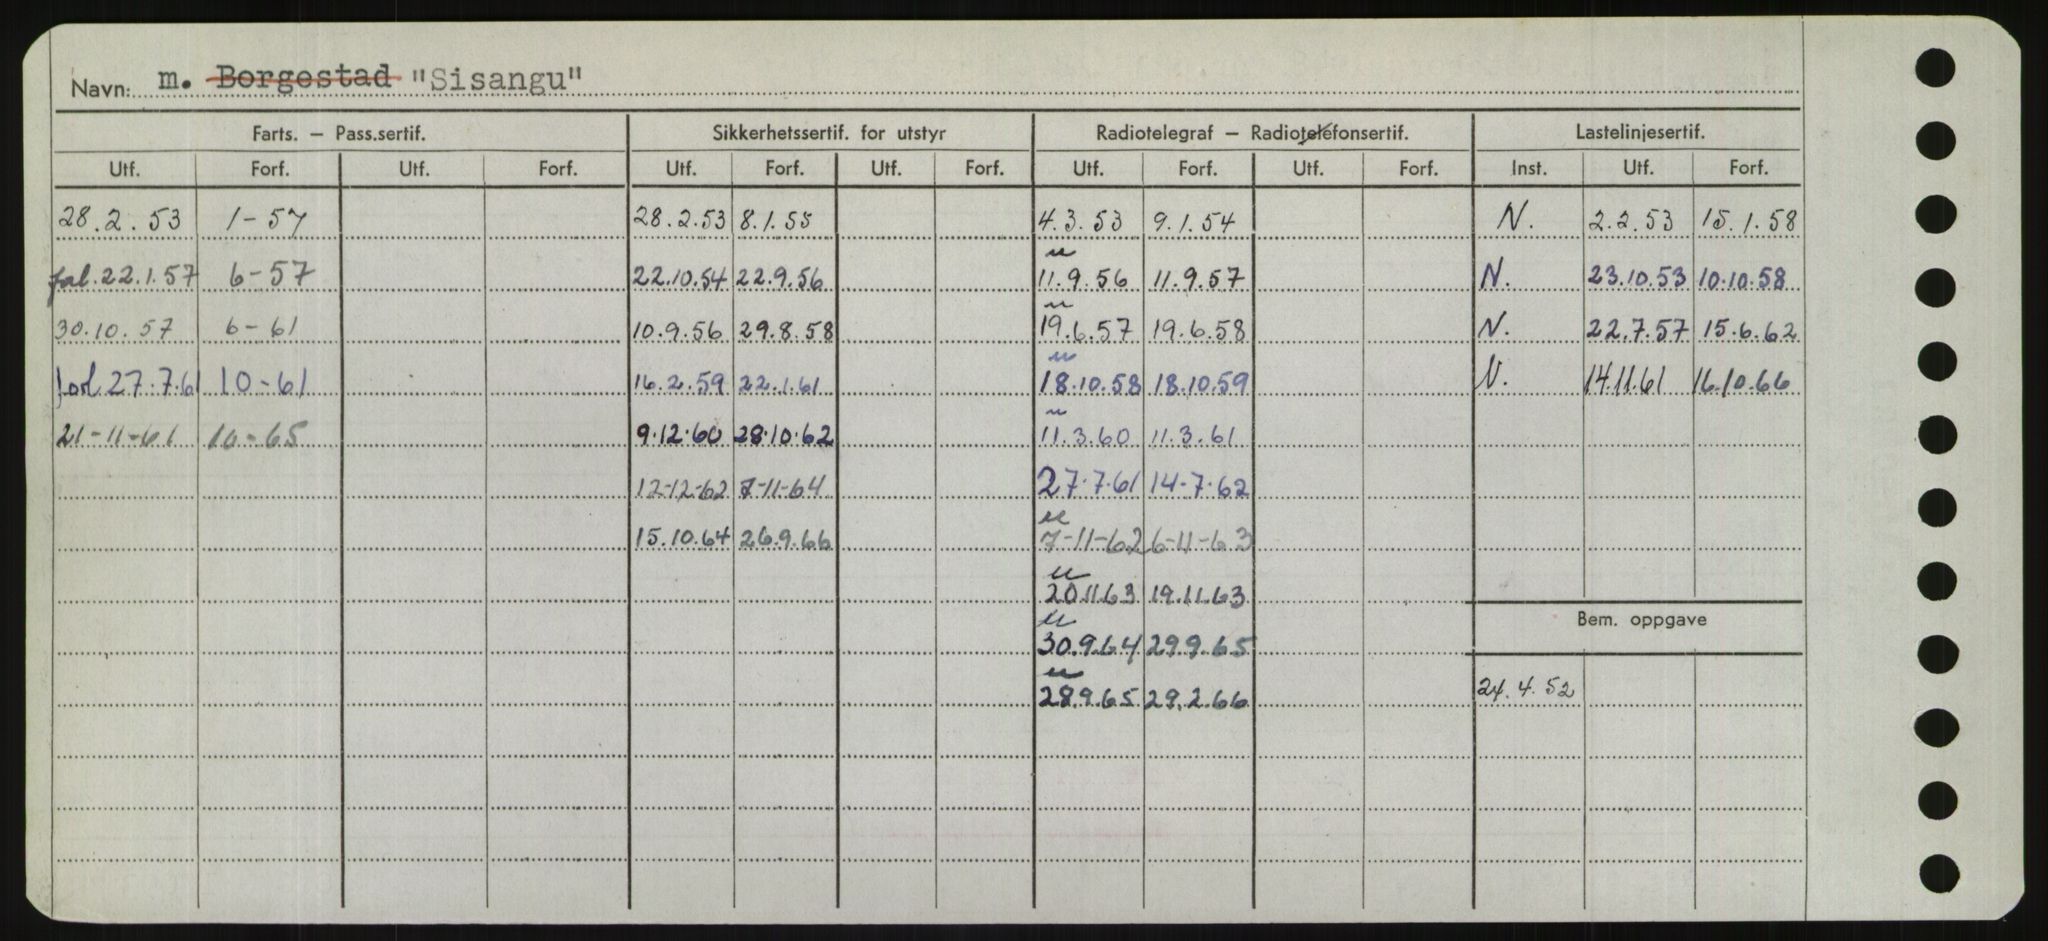 Navn: m. Borgestad "Sisangu"
Farts. – Pass.sertif. Sikkerhetssertif. for utstyr Radiotelegraf – Radiotelefonsertif. Lastelinjesertif.
Utf. Forf. Utf. Forf. Utf. Forf. Utf. Forf. Utf. Forf. Utf. Forf. Inst. Utf. Forf.
28.2.53 1-57 28.2.53 8.1.55 4.3.53 9.1.54 N. 2.2.53 15.1.58
22.1.57 6-57 22.10.54 22.9.56 11.9.56 11.9.57 N. 23.10.53 10.10.58
30.10.57 6-61 10.9.56 29.8.58 19.6.57 19.6.58 N. 22.7.57 15.6.62
27.7.61 10-61 16.2.59 22.1.61 18.10.58 18.10.59 N. 14.11.61 16.10.66
21-11-61 10-65 9.12.60 28.10.62 11.3.60 11.3.61
12-12-62 7-11-64 27.7.61 14-7-62
15.10.64 26.9.66 7-11-62 6-11-63
20.11.63 19.11.63
Bem. oppgave
30.9.64 29.9.65
28.9.65 29.2.66 24.4.52